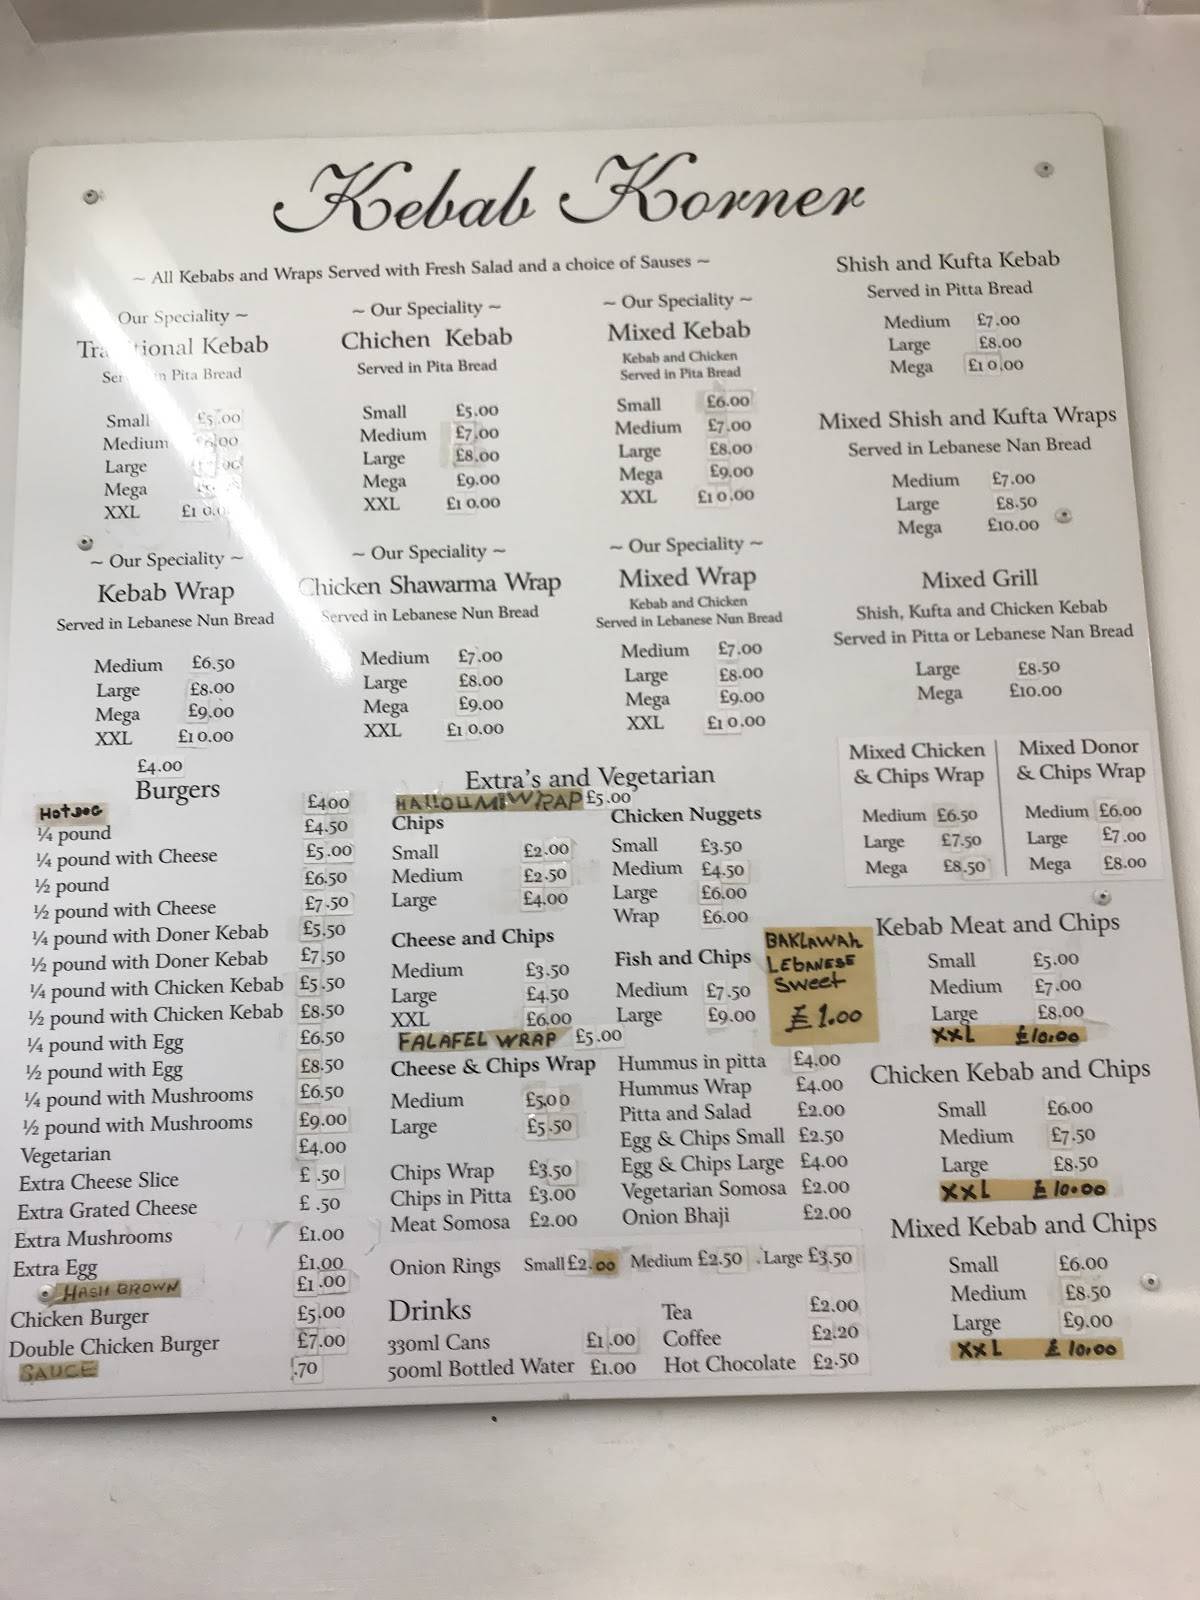 Kebab Korner
~ All Kebabs and Wraps Served with Fresh Salad and a choice of Sauses ~
Our Speciality ~
Kebab
Pita Bread
Small £5.00
Medium
Large
Mega
XXL
~ Our Speciality ~
Chichen Kebab
Served in Pita Bread
Small £5.00
Medium £7.00
Large £8.00
Mega £9.00
XXL £10.00
~ Our Speciality ~
Mixed Kebab
Kebab and Chicken
Served in Pita Bread
Small £6.00
Medium £7.00
Large £8.00
Mega £9.00
XXL £10.00
~ Our Speciality ~
Kebab Wrap
Served in Lebanese Nun Bread
Medium £6.50
Large £8.00
Mega £9.00
XXL £10.00
~ Our Speciality ~
Chicken Shawarma Wrap
Served in Lebanese Nun Bread
Medium £7.00
Large £8.00
Mega £9.00
XXL £10.00
~ Our Speciality ~
Mixed Wrap
Kebab and Chicken
Served in Lebanese Nun Bread
Medium £7.00
Large £8.00
Mega £9.00
XXL £10.00
£4.00
Burgers
HOTDOG £400
¼ pound £4.50
¼ pound with Cheese £5.00
½ pound £6.50
½ pound with Cheese £7.50
¼ pound with Doner Kebab £5.50
½ pound with Doner Kebab £7.50
¼ pound with Chicken Kebab £5.50
½ pound with Chicken Kebab £8.50
¼ pound with Egg £6.50
½ pound with Egg £8.50
¼ pound with Mushrooms £6.50
½ pound with Mushrooms £9.00
Vegetarian £4.00
Extra Cheese Slice £ .50
Extra Grated Cheese £ .50
Extra Mushrooms £1.00
Extra Egg £1.00
HASH BROWN £1.00
Chicken Burger £5.00
Double Chicken Burger £7.00
SAUCE .70
Extra's and Vegetarian
HALLOUMI WRAP £5.00
Chips
Small £2.00
Medium £2.50
Large £4.00
Cheese and Chips
Medium £3.50
Large £4.50
XXL £6.00
FALAFEL WRAP £5.00
Cheese & Chips Wrap
Medium £5.00
Large £5.50
Chips Wrap £3.50
Chips in Pitta £3.00
Meat Somosa £2.00
Chicken Nuggets
Small £3.50
Medium £4.50
Large £6.00
Wrap £6.00
Fish and Chips
Medium £7.50
Large £9.00
BAKLAWAH
LEBANESE
SWEET
£1.00
Hummus in pitta £4.00
Hummus Wrap £4.00
Pitta and Salad £2.00
Egg & Chips Small £2.50
Egg & Chips Large £4.00
Vegetarian Somosa £2.00
Onion Bhaji £2.00
Onion Rings Small £2.00 Medium £2.50 Large £3.50
Drinks
330ml Cans £1.00
500ml Bottled Water £1.00
Tea £2.00
Coffee £2.20
Hot Chocolate £2.50
Shish and Kufta Kebab
Served in Pitta Bread
Medium £7.00
Large £8.00
Mega £10.00
Mixed Shish and Kufta Wraps
Served in Lebanese Nan Bread
Medium £7.00
Large £8.50
Mega £10.00
Mixed Grill
Shish, Kufta and Chicken Kebab
Served in Pitta or Lebanese Nan Bread
Large £8.50
Mega £10.00
Mixed Chicken
& Chips Wrap
Medium £6.50
Large £7.50
Mega £8.50
Mixed Donor
& Chips Wrap
Medium £6.00
Large £7.00
Mega £8.00
Kebab Meat and Chips
Small £5.00
Medium £7.00
Large £8.00
XXL £10.00
Chicken Kebab and Chips
Small £6.00
Medium £7.50
Large £8.50
XXL £10.00
Mixed Kebab and Chips
Small £6.00
Medium £8.50
Large £9.00
XXL £10.00